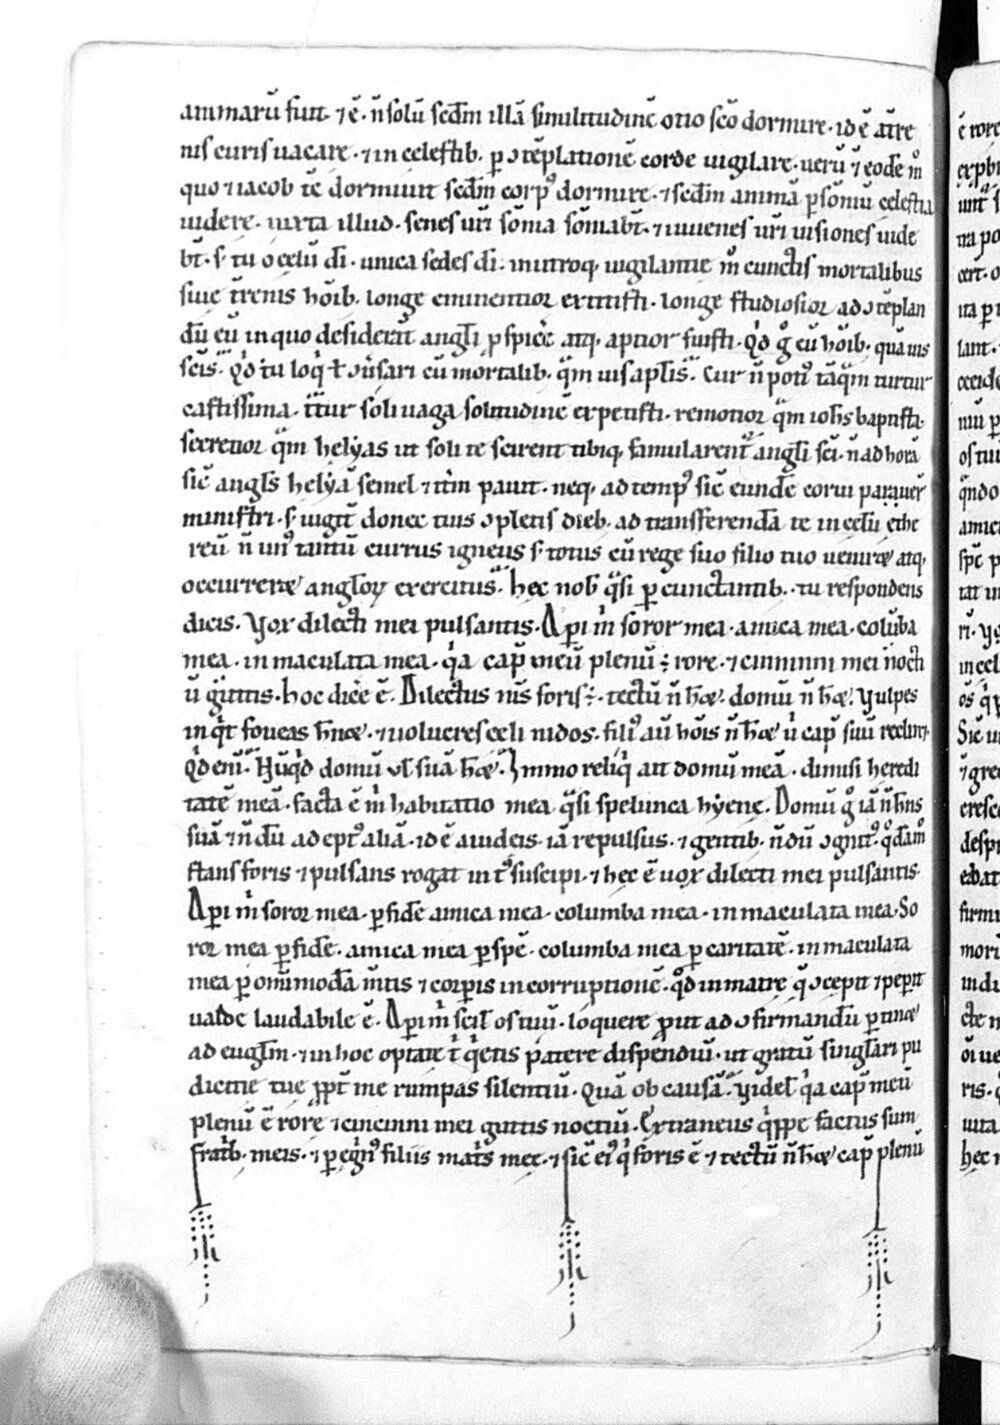 animarū fuit· ⁊ ē· n̄ solū scd̄m illā similitudinē otio sc̄o dormire· id ē at̄re
nis curis uacare· ⁊ in celestib· ꝑ ↄtēplationē corde uigilare· uerū ⁊ eodē m̊
quo ⁊ iacob tē dormiuit scd̄m corpꝰ dormire· ⁊ scd̄m animā ꝑ somniū celestia
uidere· iuxta illud· senes ur̄i sōnia sōniabt̄· ⁊ iuuenes ur̄i uisiones uide
bt̄· s; tu o celū dī· unica sedes dī· in utroq; uigilantie m̊ cunctis mortalibus
siue tr̄enis hōib· longe eminentior extitisti· longe studiosior ad ↄtēplan
dū eū in quo desiderāt angl̄i ꝓspicē atq; aptior fuisti· Qͥd g̊ cū hōib· quā uis
sc̄is· Qͥd tū loqͥ ł ↄuersari cū mortalib· qᵃm uis apl̄is· Cur n̄ potiꝰ tāqᵃm turtur
castissima· iter soliuaga solitudinē expetisti· remotior qᵃm ioh̄s baptista·
secretior qᵃm helyas ut soli te scirent tibiq; famularent᷑ angl̄i sc̄i· n̄ ad horā
sic̄ angl̄s helyā semel ⁊ itm̄ pauit· neq; ad tempꝰ sic̄ eundē corui parauer̄
ministri· s; uigit̄ donec tuis ↄpletis dieb· ad transferendā te in celū ethe
reū n̄ unꝰ tantū currus igneus s; totus cū rege suo filio tuo ueniret atq;
occurreret angloꝝ exercitus· hec nob̄ qᵃsi ꝑcunctantib· tu respondens
dicis· Vox dilecti mei pulsantis· Aꝑi mͥ soror mea· amica mea· colūba
mea· inmaculata mea· qͥa cap̄ meū plenū ÷ rore· ⁊ cincinni mei nocti
ū guttis· hoc dicē ē· Dilectus m̄s foris ÷· tectū n̄ h̄et· domū n̄ h̄et· Vulpes
inqͥt foueas h̄nt· ⁊ uolucres celi nidos· filiꝰ aū hōis n̄ h̄et uͥ cap̄ suū reclinet·
Qͥd enī· Nūqͥd domū ul̄ suā h̄et· Immo reliqͥ ait domū meā· dimisi heredi
tatē meā· facta ē mͥ habitatio mea qᵃsi spelunca hyene· Domū g̊ iā n̄ h̄ns
suā ⁊ n̄dū adeptꝰ aliā· id ē a iudeis· iā repulsus· ⁊ gentib· n̄dū ↄgnitꝰ· qͦdam̊
stans foris ⁊ pulsans rogat intꝰ suscipi· ⁊ hec ē uox dilecti mei pulsantis·
Aꝑi mͥ soror mea· ꝑ fidē amica mea· columba mea· inmaculata mea· So
ror mea ꝑ fidē· amica mea ꝑ spē· columba mea ꝑ caritatē· inmaculata
mea ꝑ omīmodā m̄tis ⁊ corꝑis incorruptionē· qͦd in matre q̄ ↄcepit ⁊ peꝑit
ualde laudabile ē· Aꝑi mͥ scil̄ os tuū· loquere ꝓut ad ↄfirmandū ꝑtinet
ad euglīm· ⁊ in hoc optate t̄ qͥetis patere dispendiū· ut gratū singl̄ari pu
dicitie tue ꝓpt̄ me rumpas silentiū· Quā ob causā· Videl̄ qͥa cap̄ meū
plenū ē rore ⁊ cincinni mei guttis noctiū· Extraneus qͥppe factus sum
fratͥb· meis· ⁊ ꝑegͥnꝰ filiis matͥs mee· ⁊ sic̄ eiꝰ qͥ foris ē ⁊ tectū n̄ h̄et cap̄ plenū